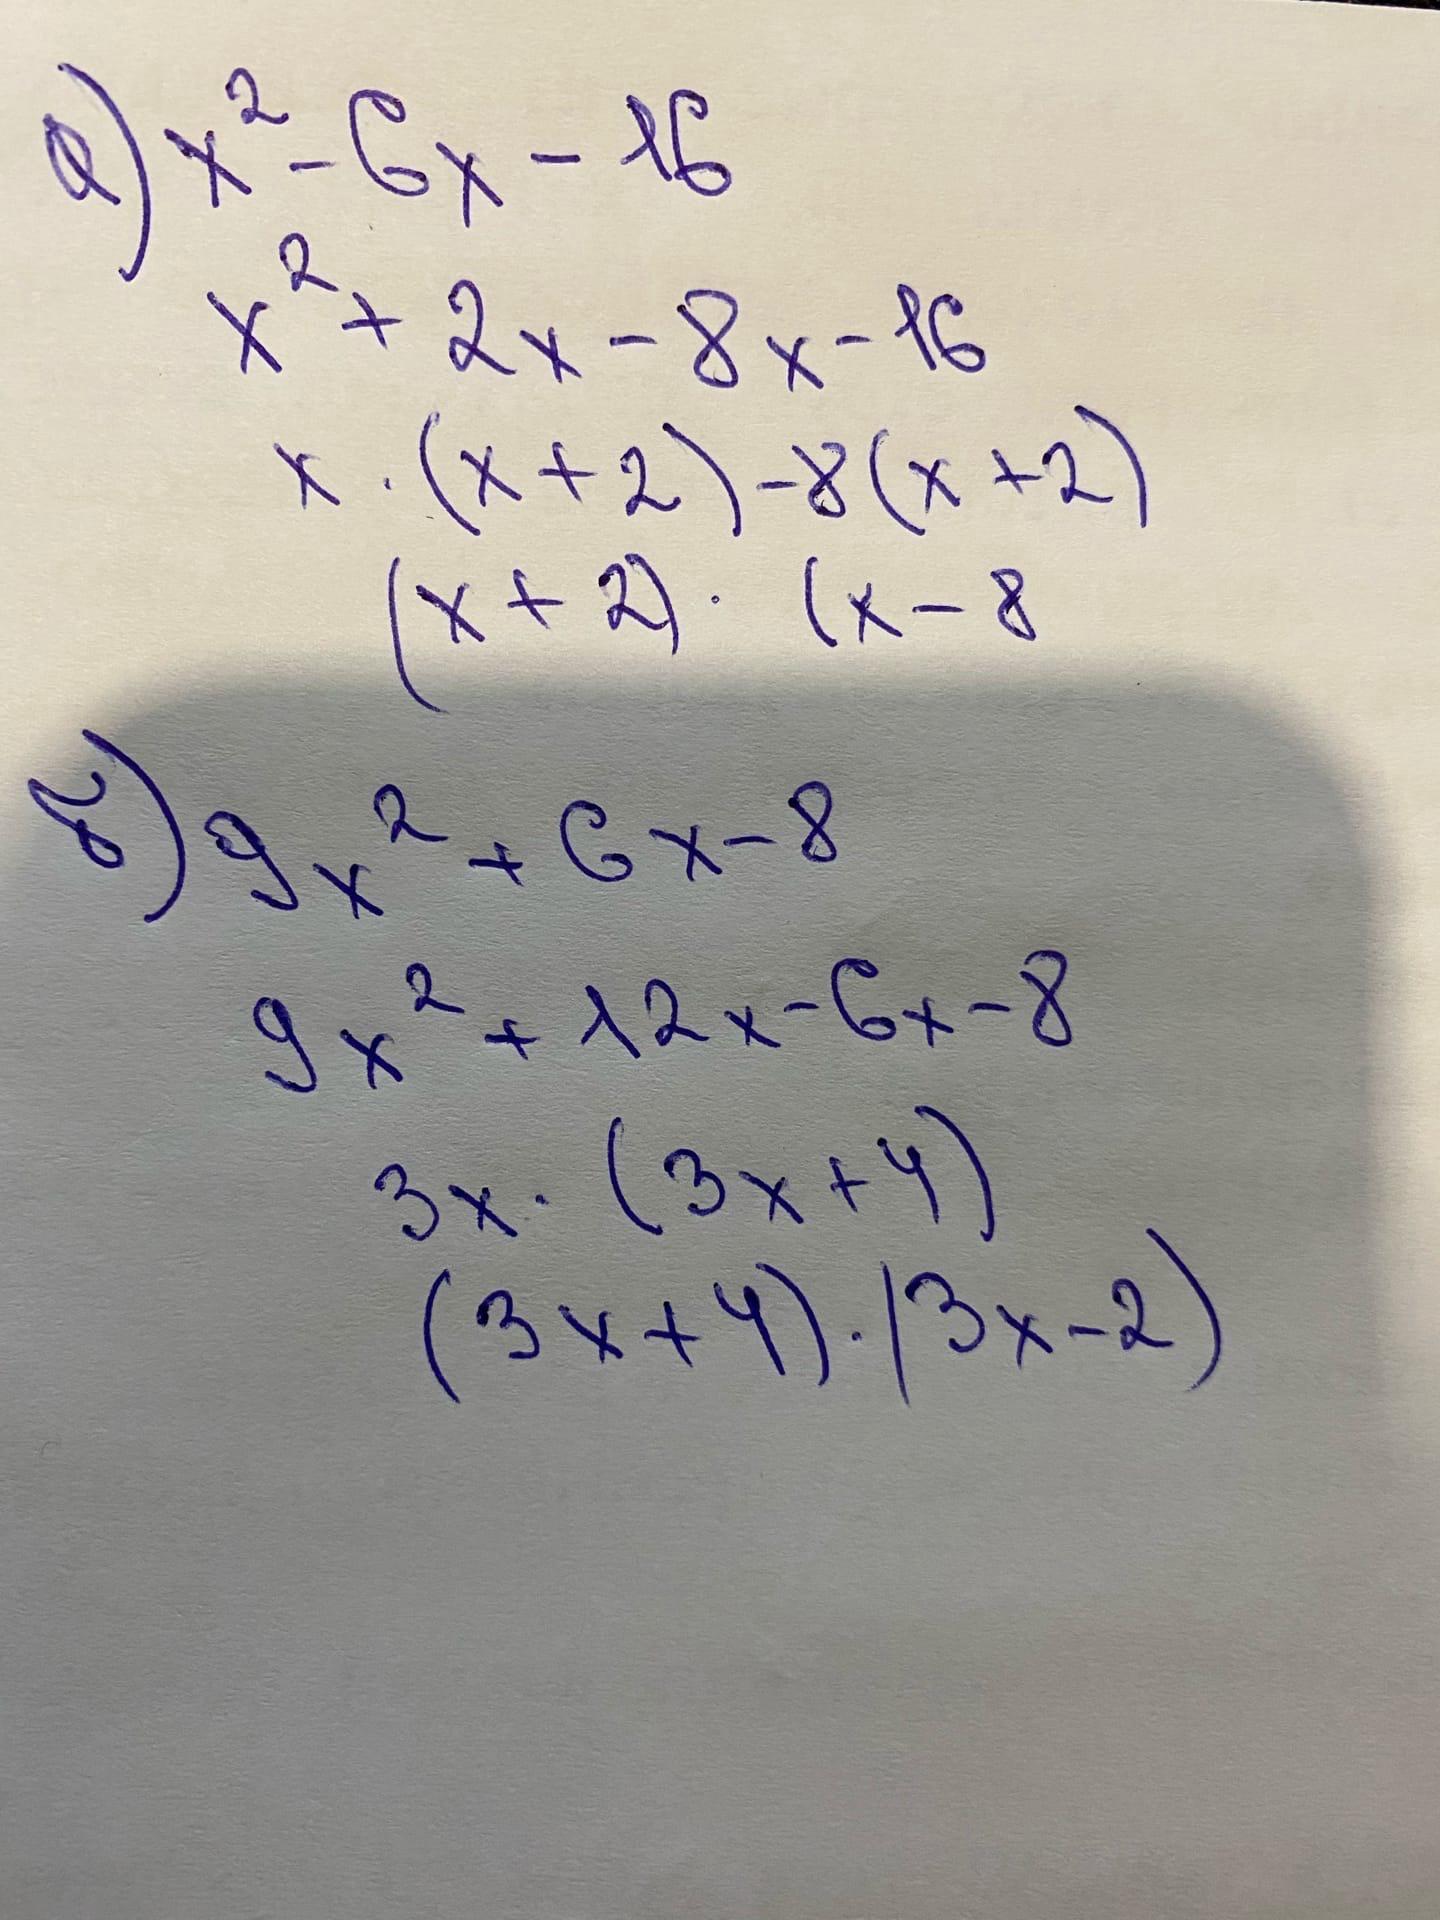 а) x² - 6x - 16
x² + 2x - 8x - 16
x · (x + 2) - 8(x + 2)
(x + 2) · (x - 8
б) 9x² + 6x - 8
9x² + 12x - 6x - 8
3x · (3x + 4)
(3x + 4) · (3x - 2)